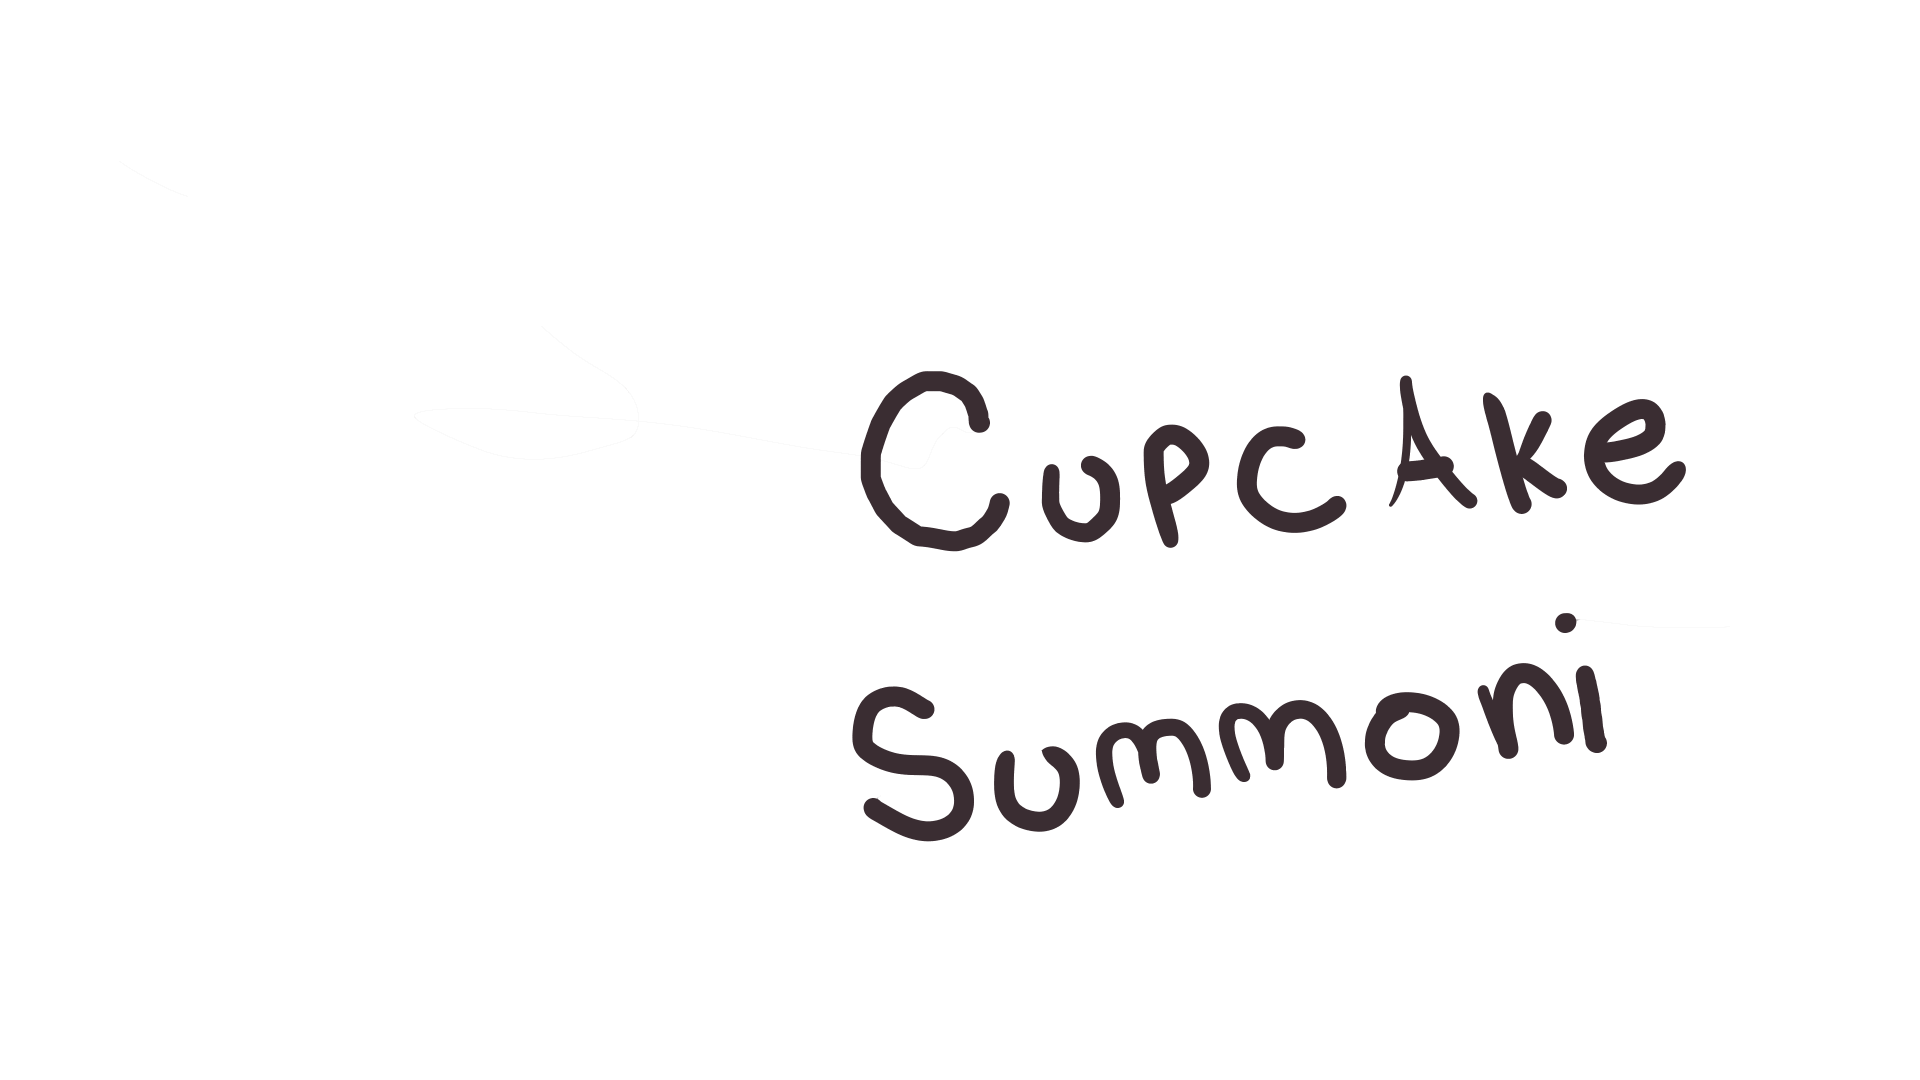 CupcAke
Summoni